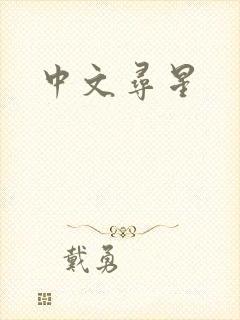 中文尋星
戴勇